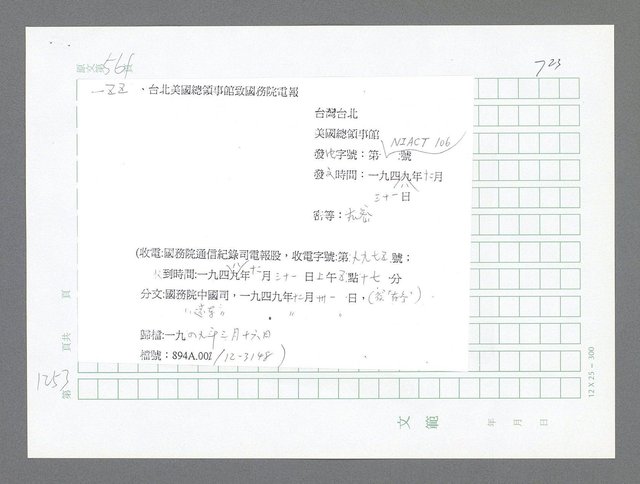 原文第56頁
723
一五五、台北美國總領事館致國務院電報
台灣台北
美國總領事館
NIACT 106
發電字號：第 號
發文時間：一九四八年十二月
三十一日
密等：
(收電:國務院通信紀錄司電報股，收電字號:第八九七五號：
收到時間:一九四八年十二月三十一日上午五點十七分
分文:國務院中國司，一九四九年十二月卅一日，
歸檔:一九四九年三月十六日
檔號：894A.00/12-3148)
1253
第 頁共 頁
12 X 25 = 300
文範
年 月 日